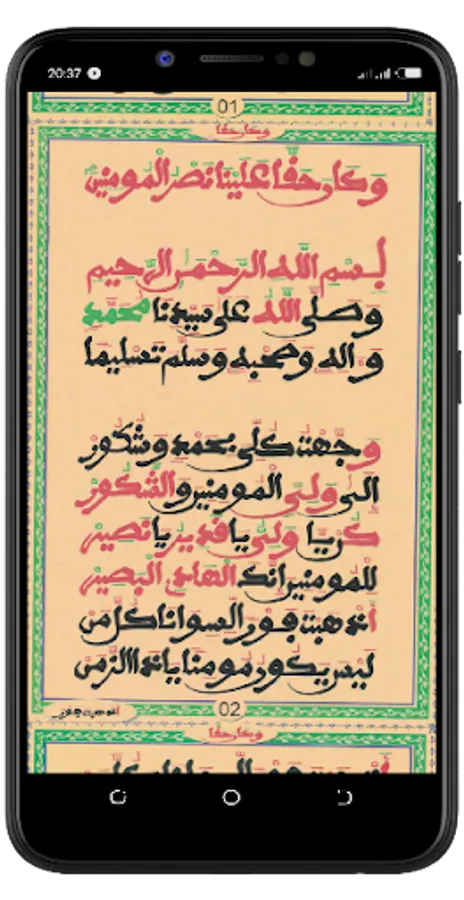 20:37
01
وكان حقا
وكان حقا علينا نصر المومنين
بسم الله الرحمن الرحيم
وصلى الله على سيدنا محمد
وءاله وصحبه وسلم تسليما
وجهت كلي بحمد وشكور
الى ولي المومنين والشكور
كن يا ولي يا قدير يا نصير
للمومنين انك الهادي البصير
اذهبت فورا لسوانا كل من
ليس يكون مومنا ياذا الزمن
02
وكان حقا